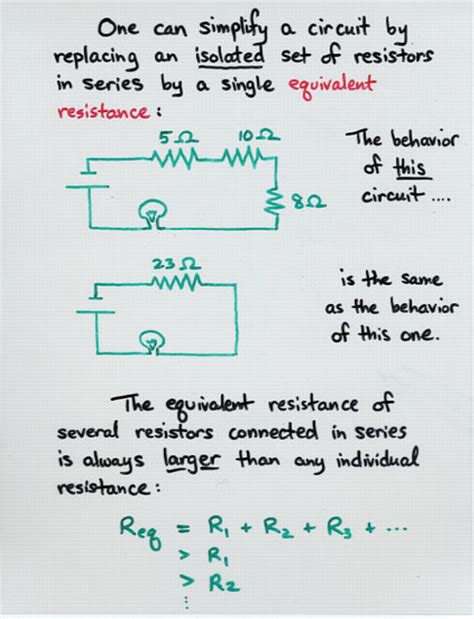 One can simplify a circuit by
replacing an isolated set of resistors
in series by a single equivalent
resistance:
5Ω 10Ω
The behavior
of this
8Ω circuit ....
23Ω
is the same
as the behavior
of this one.
The equivalent resistance of
several resistors connected in series
is always larger than any individual
resistance:
Req = R1 + R2 + R3 + ...
> R1
> R2
⋮